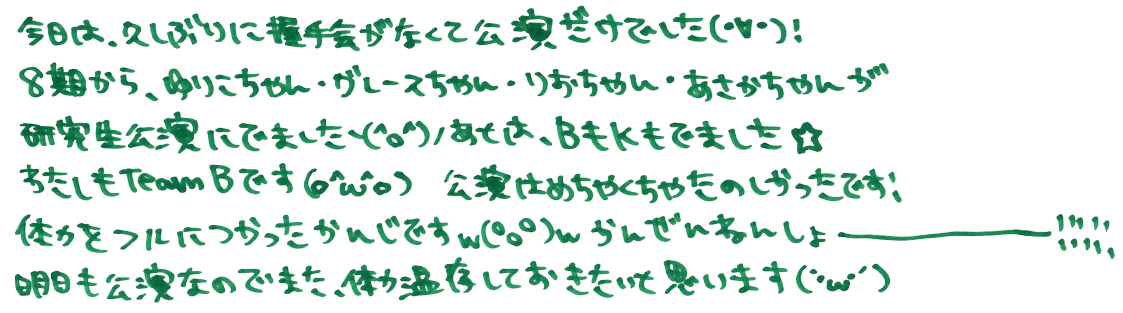 今日は、久しぶりに握手会がなくて公演だけでした(・∀・)!
8期から、ゆりこちゃん・グレースちゃん・りおちゃん・あさかちゃんが
研究生公演にでました\(^o^)/あとは、BもKもでました☆
わたしもTeam Bです(o^ω^o) 公演はめちゃくちゃたのしかったです!
体力をフルにつかったかんじですw(°o°)w かんぜんねんしょ────!!!!!!!!!
明日も公演なのでまた、体力温存しておきたいと思います(・ω・´)